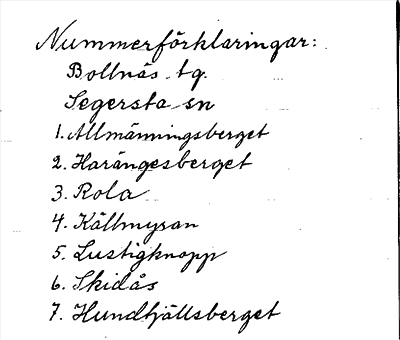 Nummerförklaringar:
Bollnäs tg.
Segersta sn
1. Allmänningsberget
2. Harängesberget
3. Rola
4. Källmyran
5. Lustigknopp
6. Skidås
7. Hundtjällsberget